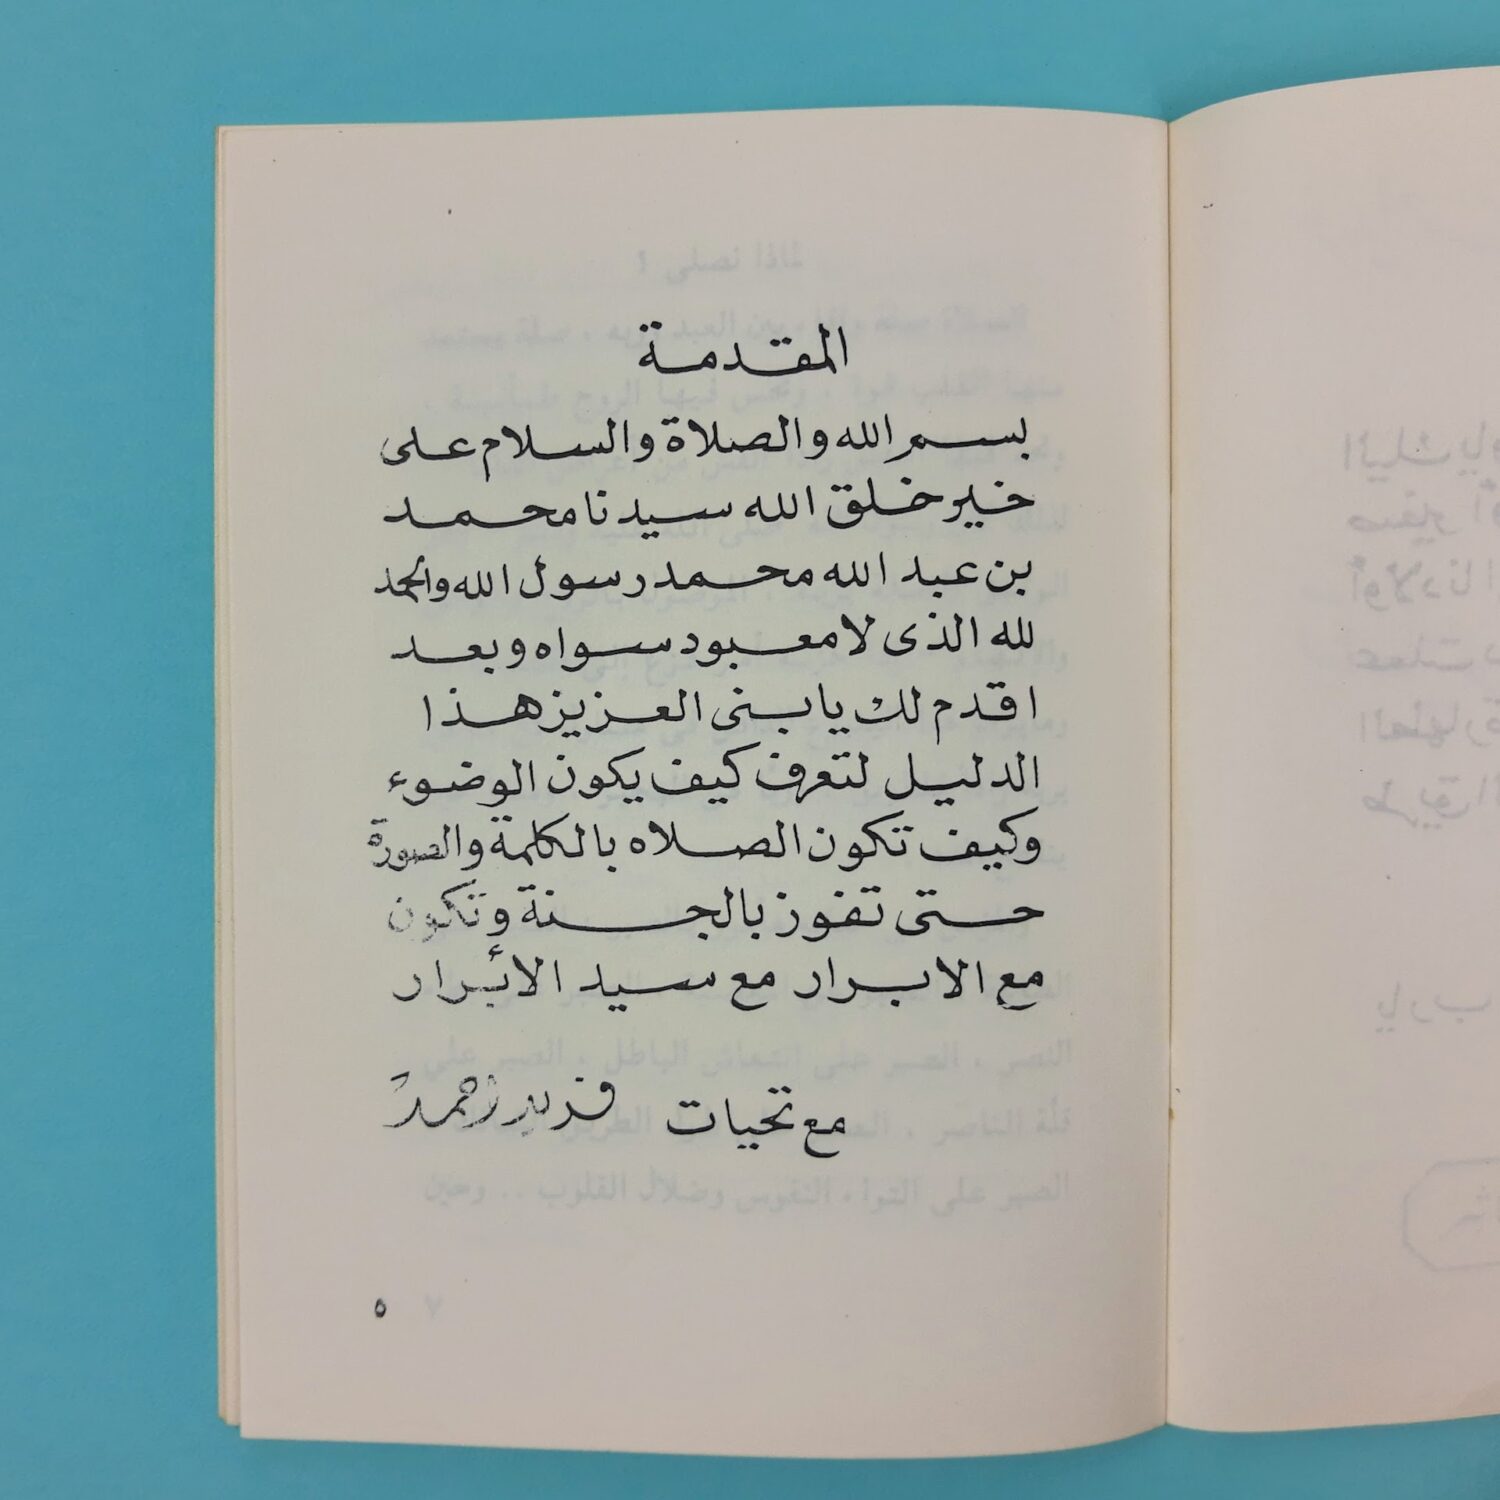 المقدمة
بسم الله والصلاة والسلام على
خير خلق الله سيدنا محمد
بن عبد الله محمد رسول الله والحمد
لله الذى لا معبود سواه وبعد
اقدم لك يا بنى العزيز هذا
الدليل لتعرف كيف يكون الوضوء
وكيف تكون الصلاه بالكلمة والصورة
حتى تفوز بالجنة وتكون
مع الابرار مع سيد الأبرار
مع تحيات فريد أحمد
٥